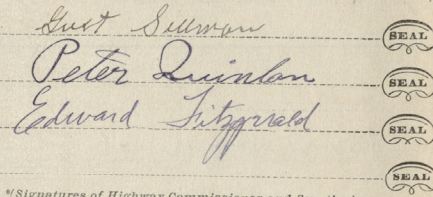 Gust Sellman SEAL
Peter Quinlan SEAL
Edward Fitzgerald SEAL
SEAL
*(Signatures of Highway Commissioner and